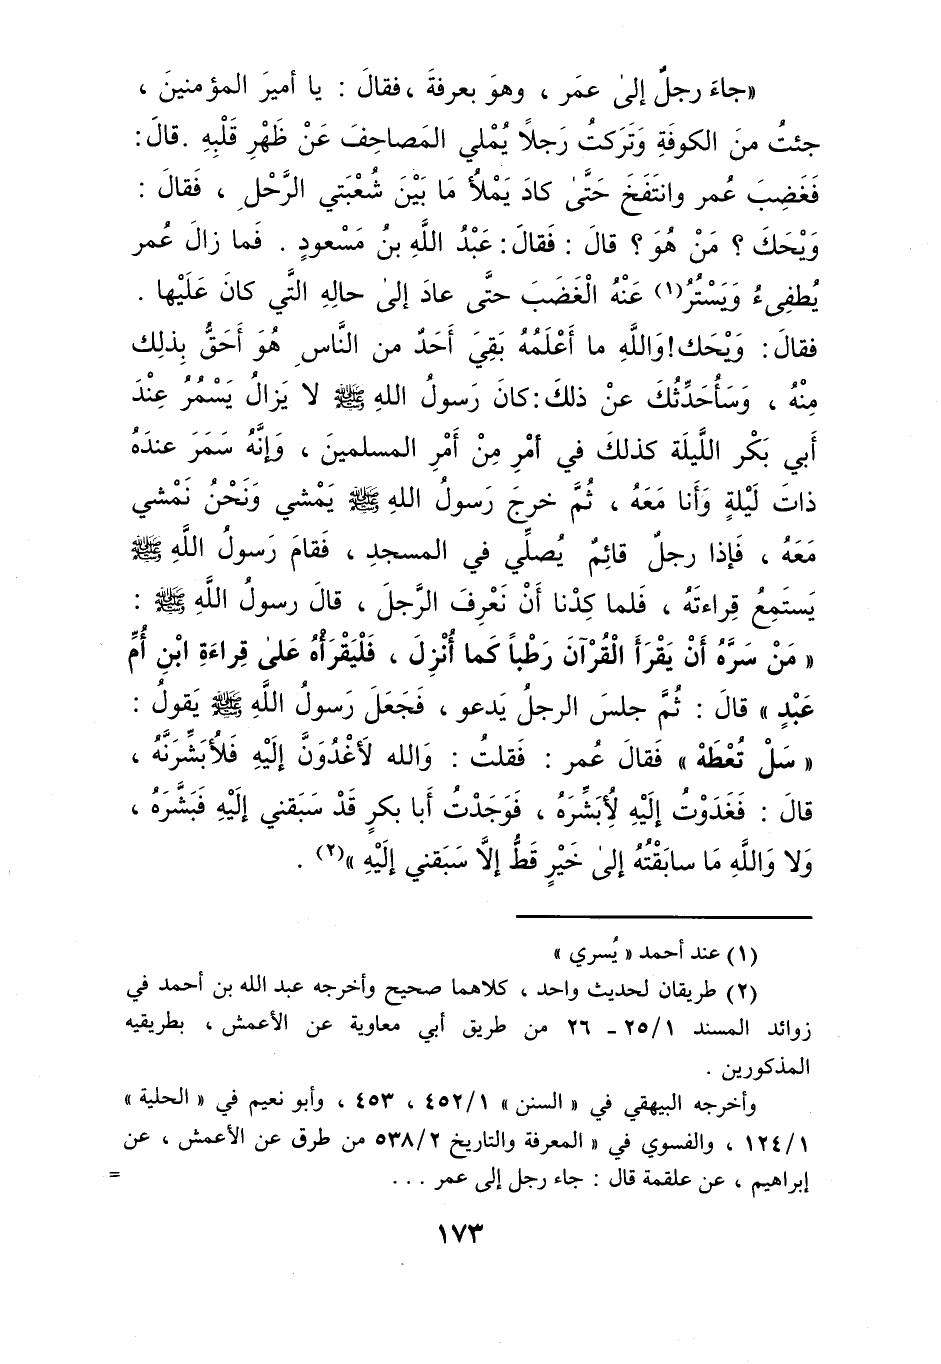 «جاءَ رجلٌ إلىٰ عمَر ، وهوَ بعرفةَ ، فقالَ : يا أميرَ المؤمنينَ ،
جئتُ منَ الكوفَةِ وَتَرَكتُ رَجلاً يُمْلي المَصاحِفَ عَنْ ظَهْرِ قَلْبِهِ . قالَ :
فَغَضِبَ عُمر وانتَفَخَ حَتَّىٰ كادَ يَمْلأُ مَا بَيْنَ شُعْبَتي الرَّحْلِ ، فَقالَ :
وَيْحَكَ ؟ مَنْ هُوَ ؟ قالَ : فَقالَ : عَبْدُ اللَّهِ بنُ مَسْعودٍ . فَما زالَ عُمر
يُطفِىءُ وَيَسْتُرُ(١) عَنْهُ الْغَضَبَ حتَّى عادَ إلىٰ حالِهِ التَّي كانَ عَلَيْها .
فقالَ : وَيْحَك! وَاللَّهِ ما أَعْلَمُهُ بَقِيَ أَحَدٌ من النَّاسِ هُوَ أَحَقُّ بِذلِك
مِنْهُ ، وَسَأُحَدِّثُكَ عنْ ذلكَ : كانَ رَسولُ اللهِ ﷺ لا يَزالُ يَسْمُرُ عِنْدَ
أَبي بَكْر اللَّيلَة كذلكَ في أمْرٍ مِنْ أَمْرِ المسلمينَ ، وَإنَّهُ سَمَرَ عندَهُ
ذاتَ لَيْلةٍ وَأَنا مَعَهُ ، ثُمَّ خرجَ رَسولُ اللهِ ﷺ يَمْشي وَنَحْنُ نَمْشي
مَعَهُ ، فَإذا رجلٌ قائِمٌ يُصلِّي في المسجدِ ، فَقامَ رَسولُ اللَّهِ ﷺ
يَستَمِعُ قِراءتَهُ ، فَلما كِدْنا أَنْ نَعْرِفَ الرَّجلَ ، قالَ رسولُ اللَّهِ ﷺ :
« مَنْ سَرَّهُ أَنْ يَقْرَأَ الْقُرْآنَ رَطْباً كَما أُنْزِلَ ، فَلْيَقْرَأْهُ عَلىٰ قِراءَةِ ابْنِ أُمِّ
عَبْدٍ » قالَ : ثُمَّ جلسَ الرجلُ يَدعو ، فَجَعَلَ رَسولُ اللَّهِ ﷺ يَقولُ :
« سَلْ تُعْطَهْ » فَقالَ عُمر : فَقلتُ : وَالله لأَغْدُوَنَّ إلَيْهِ فَلأُبَشِّرَنَّهُ ،
قالَ : فَغَدَوْتُ إلَيْهِ لِأُبَشِّرَهُ ، فَوَجَدْتُ أَبا بكرٍ قَدْ سَبَقني إلَيْهِ فَبَشَّرَهُ ،
وَلا وَاللَّهِ مَا سابَقْتُهُ إلىٰ خَيْرٍ قَطُّ إلَّا سَبَقني إلَيْهِ »(٢) .
(١) عند أحمد « يُسري »
(٢) طريقان لحديث واحد ، كلاهما صحيح وأخرجه عبد الله بن أحمد في
زوائد المسند ٢٥/١ - ٢٦ من طريق أبي معاوية عن الأعمش ، بطريقيه
المذكورين .
وأخرجه البيهقي في « السنن » ٤٥٢/١ ، ٤٥٣ ، وأبو نعيم في « الحلية »
١٢٤/١ ، والفسوي في « المعرفة والتاريخ ٥٣٨/٢ من طرق عن الأعمش ، عن
إبراهيم ، عن علقمة قال : جاء رجل إلى عمر . . . =
١٧٣